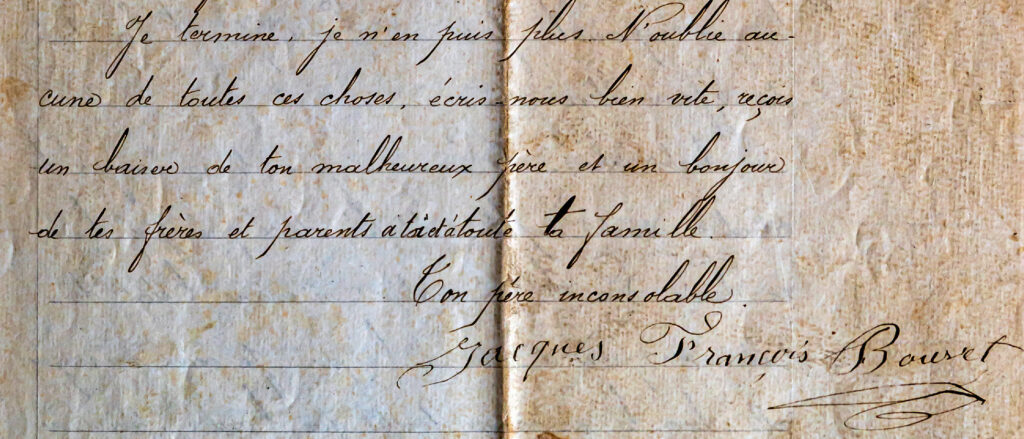 Je termine, je n'en puis plus. N'oublie au-
cune de toutes ces choses, écris-nous bien vite, reçois
un baiser de ton malheureux père et un bonjour
de tes frères et parents à toi et à toute ta famille.
Ton père inconsolable.
Jacques François Bourret